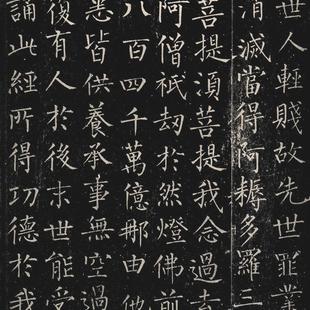 世人輕賤故先世罪業
消滅當得阿耨多羅三
菩提須菩提我念過去
阿僧祇劫於然燈佛前
八百四千萬億那由他
悉皆供養承事無空過
復有人於後末世能受
誦此經所得功德於我